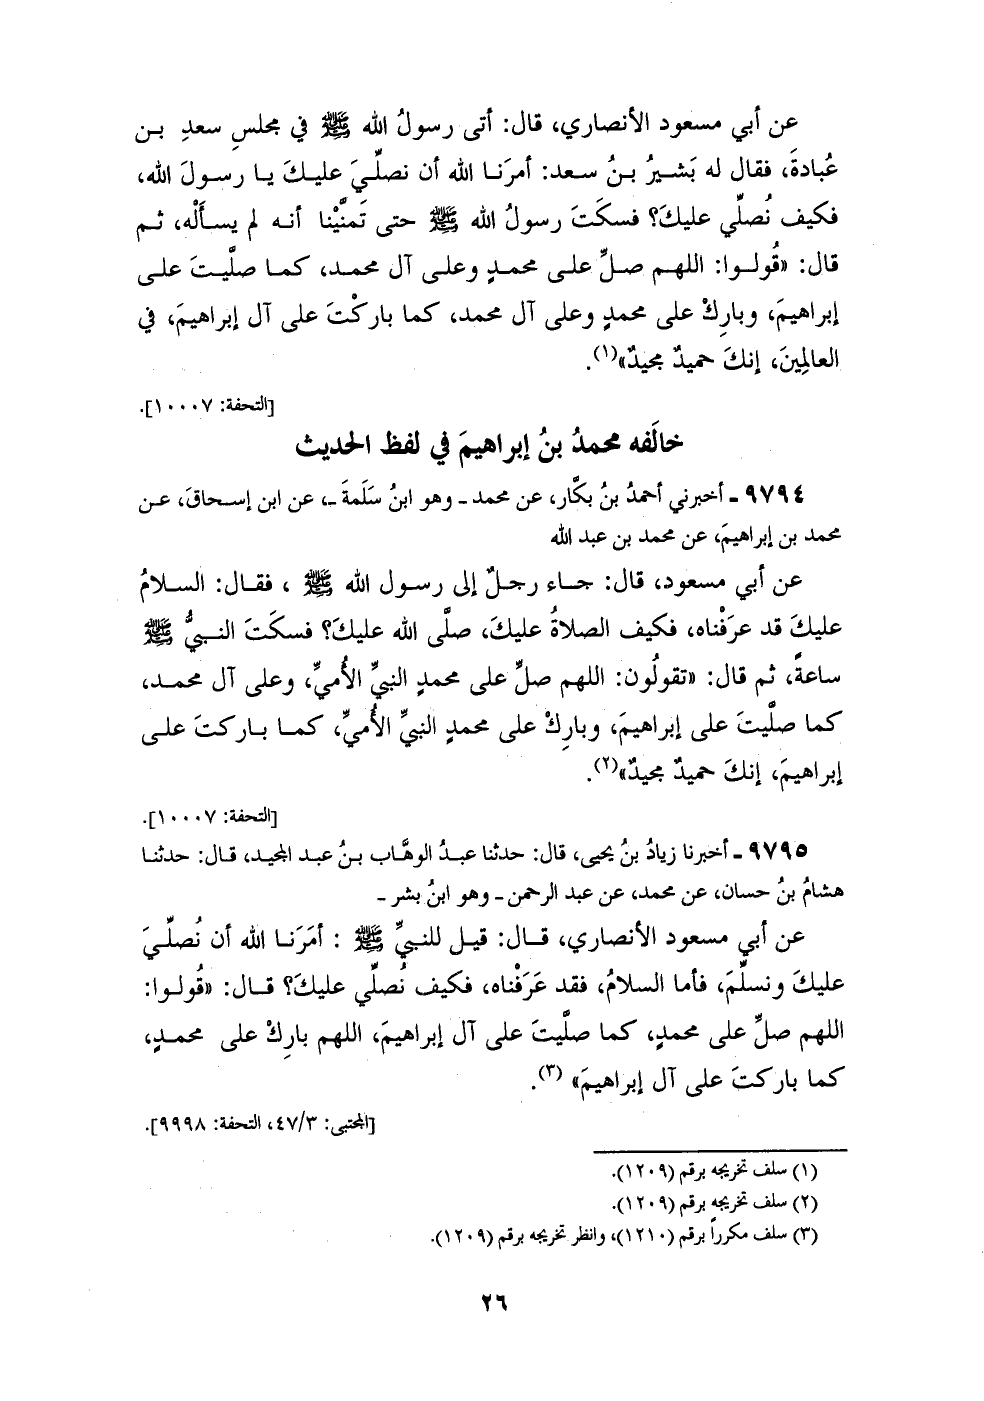 عن أبي مسعود الأنصاري، قال: أتى رسولُ الله ﷺ في مجلسِ سعدِ بـن
عُبادةَ، فقال له بَشـيرُ بـنُ سـعد: أمرَنـا الله أن نصلِّـيَ عليـكَ يـا رسـولَ الله،
فكيف نُصلِّي عليكَ؟ فسكَتَ رسولُ الله ﷺ حتى تَمنَّيْنا أنـه لم يسـأَلْه، ثـم
قال: «قُولـوا: اللهـم صـلِّ علـى محمـدٍ وعلـى آل محمـد، كمـا صلَّيـتَ علـى
إبراهيمَ، وبارِكْ على محمدٍ وعلى آل محمد، كما باركْتَ على آل إبراهيمَ، في
العالمِينَ، إنكَ حميدٌ مجيدٌ»(١).
[التحفة: ١٠٠٠٧].
خالَفه محمدُ بنُ إبراهيمَ في لفظ الحديث
٩٧٩٤ ـ أخبرني أحمدُ بنُ بكَّار، عن محمد ـ وهو ابنُ سَلَمةَ ـ، عن ابن إسـحاقَ، عـن
محمد بن إبراهيمَ، عن محمد بن عبد الله
عن أبي مسعود، قال: جـاء رجـلٌ إلى رسـول الله ﷺ ، فقـال: السـلامُ
عليكَ قد عرَفْناه، فكيف الصلاةُ عليكَ، صلَّى الله عليكَ؟ فسكَتَ النـبيُّ ﷺ
ساعةً، ثم قال: «تقولُون: اللهم صلِّ على محمدٍ النبيِّ الأُميِّ، وعلى آل محمـد،
كما صلَّيتَ على إبراهيمَ، وبارِكْ على محمدٍ النبيِّ الأُميِّ، كمـا بـاركتَ علـى
إبراهيمَ، إنكَ حميدٌ مجيدٌ»(٢).
[التحفة: ١٠٠٠٧].
٩٧٩٥ ـ أخبرنا زيادُ بنُ يحيى، قال: حدثنا عبـدُ الوهَّاب بـنُ عبد المجيد، قـال: حدثنـا
هشامُ بنُ حسان، عن محمد، عن عبد الرحمن ـ وهو ابنُ بشر ـ
عن أبي مسعود الأنصاري، قـال: قيـل للنبيِّ ﷺ : أمَرَنـا الله أن نُصلِّـيَ
عليكَ ونسلِّمَ، فأما السلامُ، فقد عَرَفْناه، فكيف نُصلِّي عليكَ؟ قـال: «قُولـوا:
اللهم صلِّ على محمدٍ، كما صلَّيتَ على آل إبراهيمَ، اللهم بارِكْ على محمـدٍ،
كما باركتَ على آل إبراهيمَ» (٣).
[المجتبى: ٤٧/٣، التحفة: ٩٩٩٨].
(١) سلف تخريجه برقم (١٢٠٩).
(٢) سلف تخريجه برقم (١٢٠٩).
(٣) سلف مكرراً برقم (١٢١٠)، وانظر تخريجه برقم (١٢٠٩).
٢٦